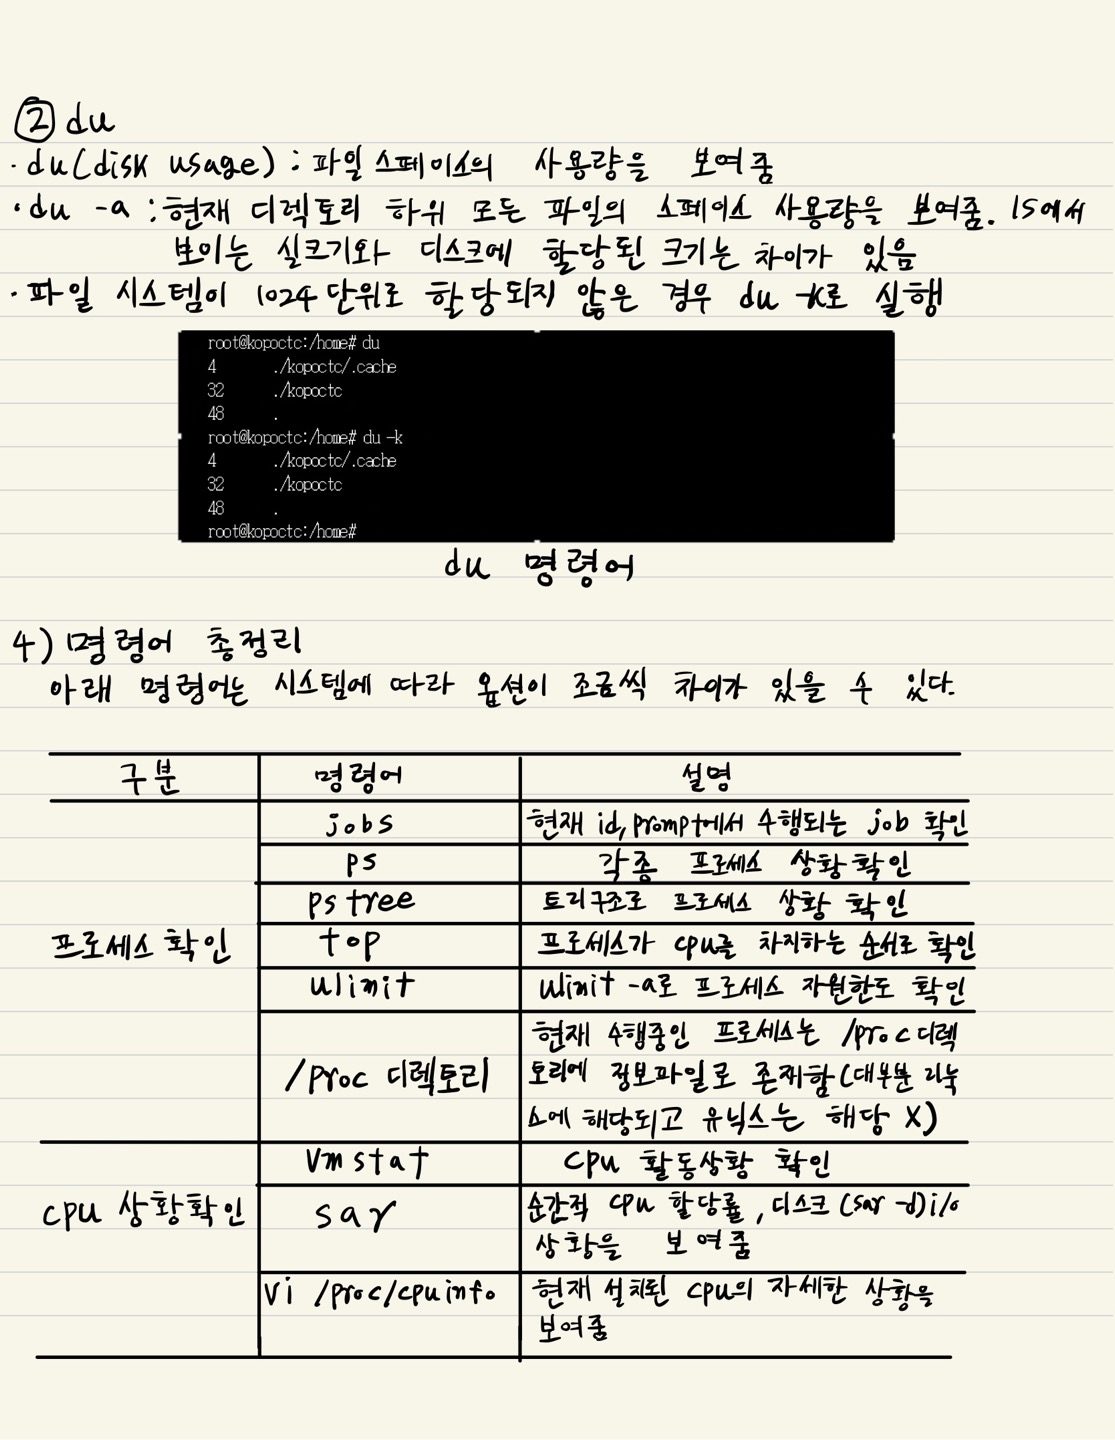 ② du
· du(disk usage) : 파일 스페이스의 사용량을 보여줌
· du -a : 현재 디렉토리 하위 모든 파일의 스페이스 사용량을 보여줌. ls에서
보이는 실크기와 디스크에 할당된 크기는 차이가 있음
· 파일 시스템이 1024 단위로 할당되지 않은 경우 du -k로 실행
root@kopoctc:/home# du
4 ./kopoctc/.cache
32 ./kopoctc
48 .
root@kopoctc:/home# du -k
4 ./kopoctc/.cache
32 ./kopoctc
48 .
root@kopoctc:/home#
du 명령어
4) 명령어 총정리
아래 명령어는 시스템에 따라 옵션이 조금씩 차이가 있을 수 있다.
구분 명령어 설명
jobs 현재 id, prompt에서 수행되는 job 확인
ps 각종 프로세스 상황 확인
pstree 트리구조로 프로세스 상황 확인
프로세스 확인 top 프로세스가 cpu를 차지하는 순서로 확인
ulimit ulimit -a로 프로세스 자원한도 확인
현재 수행중인 프로세스는 /proc 디렉
/proc 디렉토리 토리에 정보파일로 존재함(대부분 리눅
스에 해당되고 유닉스는 해당 X)
vmstat cpu 활동상황 확인
cpu 상황확인 sar 순간적 cpu 할당률, 디스크 (sar -d)i/o
상황을 보여줌
vi /proc/cpuinfo 현재 설치된 cpu의 자세한 상황을
보여줌